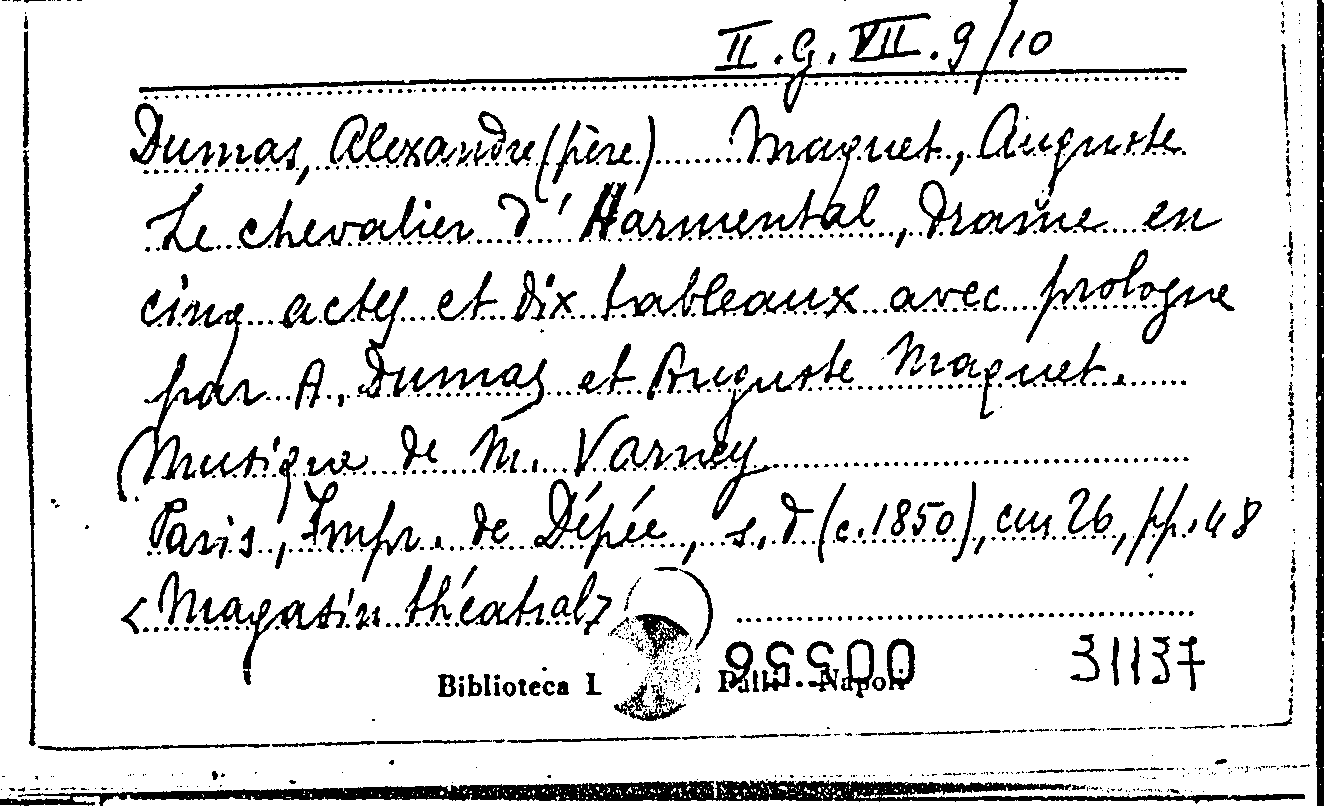 II.G.VII.9/10
Dumas, Alexandre (père) Maquet, Auguste
Le chevalier d'Harmental, drame en
cinq actes et dix tableaux avec prologue
par A. Dumas et Auguste Maquet.
Musique de M. Varney
Paris, Impr. de Dépée, s.d (c.1850), cm 26, pp. 48
<Magasin théatral>
Biblioteca L Palli - Napoli 31137